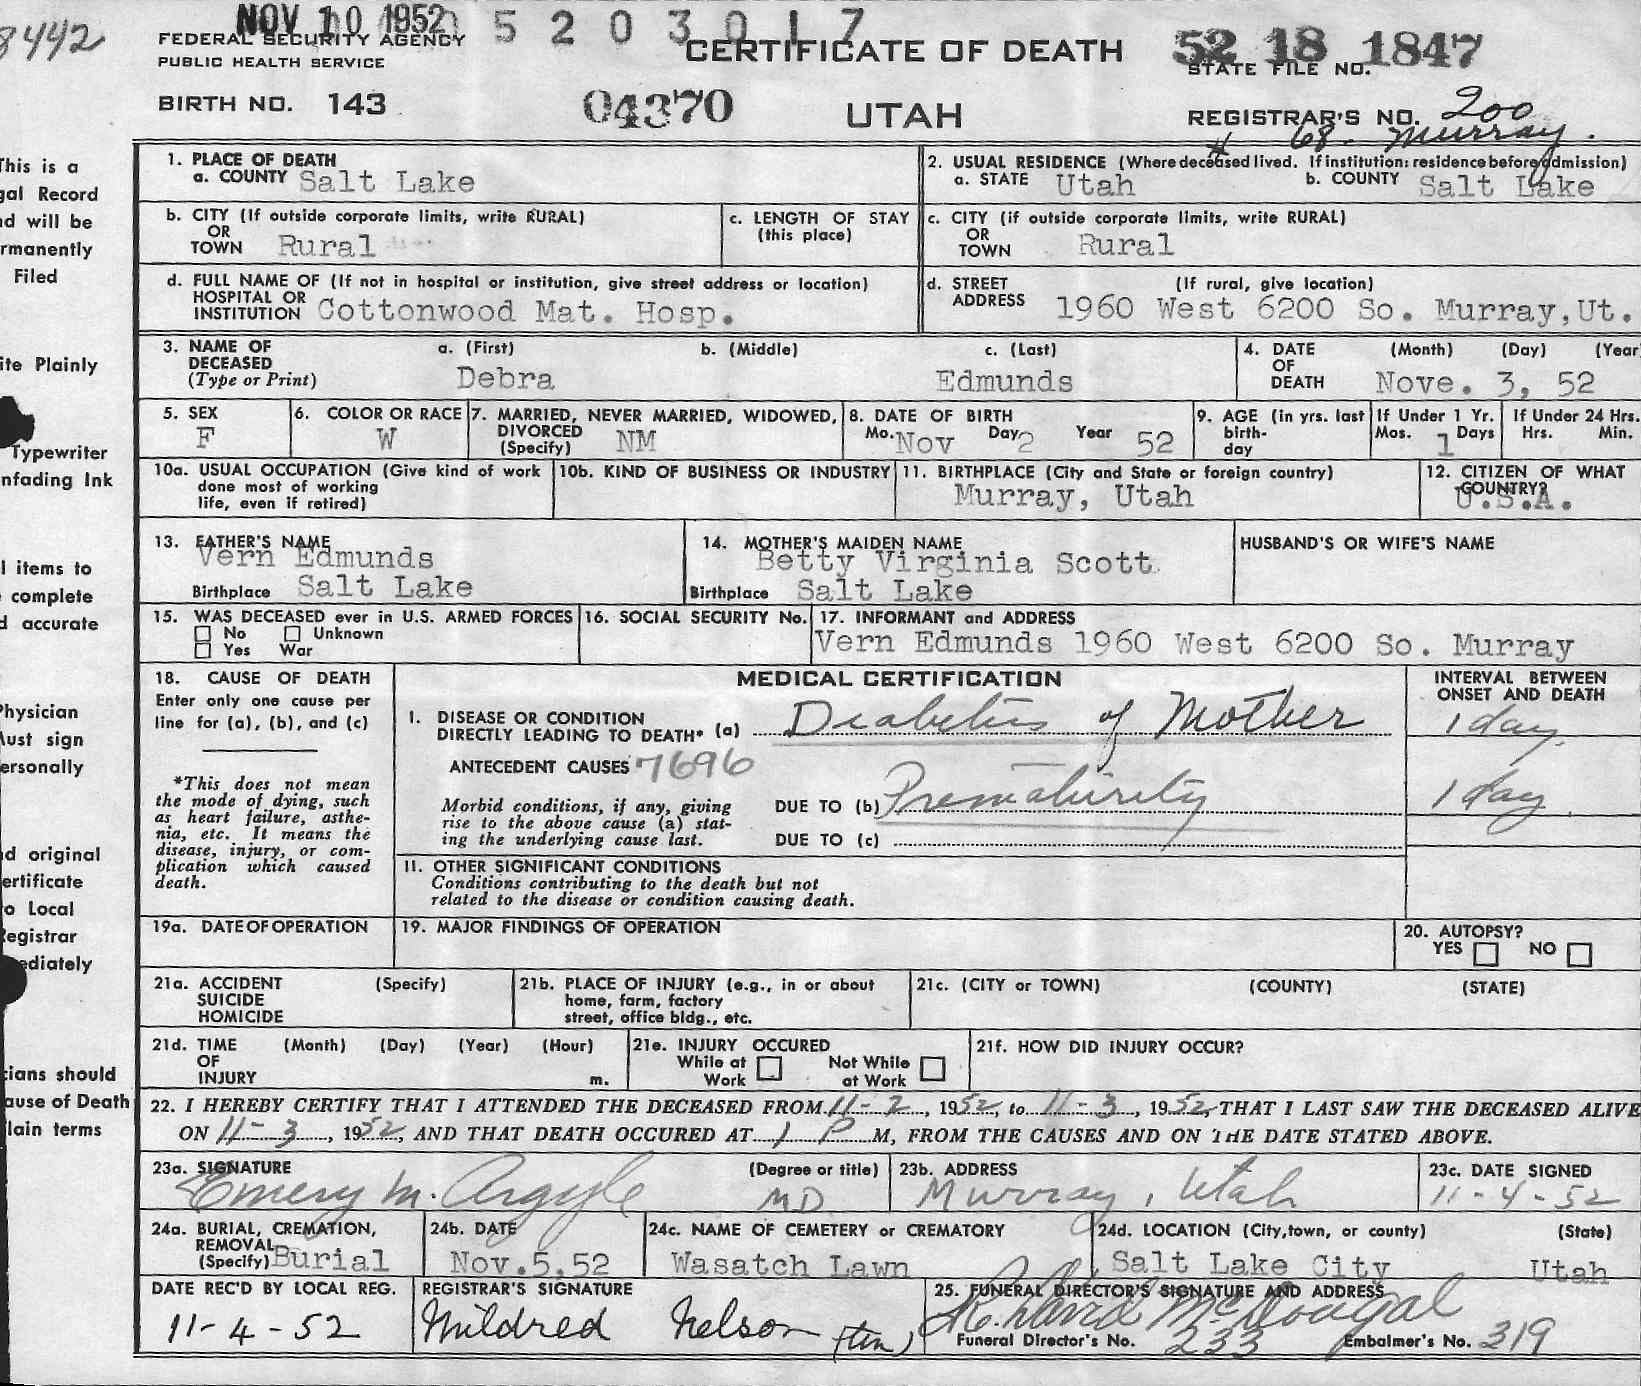 8442
NOV 10 1952 5 2 0 3 0 1 7
FEDERAL SECURITY AGENCY
PUBLIC HEALTH SERVICE
CERTIFICATE OF DEATH
52 18 1847
STATE FILE NO.
BIRTH NO. 143
04370
UTAH
REGISTRAR'S NO. 200
68. Murray.
1. PLACE OF DEATH
a. COUNTY Salt Lake
2. USUAL RESIDENCE (Where deceased lived. If institution: residence before admission)
a. STATE Utah b. COUNTY Salt Lake
b. CITY (If outside corporate limits, write RURAL)
OR
TOWN Rural
c. LENGTH OF STAY
(this place)
c. CITY (if outside corporate limits, write RURAL)
OR
TOWN Rural
d. FULL NAME OF (If not in hospital or institution, give street address or location)
HOSPITAL OR
INSTITUTION Cottonwood Mat. Hosp.
d. STREET (If rural, give location)
ADDRESS 1960 West 6200 So. Murray,Ut.
3. NAME OF DECEASED
(Type or Print)
a. (First) b. (Middle) c. (Last)
Debra Edmunds
4. DATE OF DEATH (Month) (Day) (Year
Nove. 3, 52
5. SEX
F
6. COLOR OR RACE
W
7. MARRIED, NEVER MARRIED, WIDOWED,
DIVORCED
(Specify) NM
8. DATE OF BIRTH
Mo. Nov Day 2 Year 52
9. AGE (in yrs. last
birth-
day
If Under 1 Yr.
Mos. 1 Days
If Under 24 Hrs.
Hrs. Min.
10a. USUAL OCCUPATION (Give kind of work
done most of working
life, even if retired)
10b. KIND OF BUSINESS OR INDUSTRY
11. BIRTHPLACE (City and State or foreign country)
Murray, Utah
12. CITIZEN OF WHAT
COUNTRY?
U.S.A.
13. FATHER'S NAME
Vern Edmunds
Birthplace Salt Lake
14. MOTHER'S MAIDEN NAME
Betty Virginia Scott
Birthplace Salt Lake
HUSBAND'S OR WIFE'S NAME
15. WAS DECEASED ever in U.S. ARMED FORCES
No Unknown
Yes War
16. SOCIAL SECURITY No.
17. INFORMANT and ADDRESS
Vern Edmunds 1960 West 6200 So. Murray
18. CAUSE OF DEATH
Enter only one cause per
line for (a), (b), and (c)
*This does not mean
the mode of dying, such
as heart failure, asthe-
nia, etc. It means the
disease, injury, or com-
plication which caused
death.
MEDICAL CERTIFICATION
I. DISEASE OR CONDITION
DIRECTLY LEADING TO DEATH* (a) Diabetes of Mother
ANTECEDENT CAUSES 7696
Morbid conditions, if any, giving
rise to the above cause (a) stat-
ing the underlying cause last.
DUE TO (b) Prematurity
DUE TO (c)
II. OTHER SIGNIFICANT CONDITIONS
Conditions contributing to the death but not
related to the disease or condition causing death.
INTERVAL BETWEEN
ONSET AND DEATH
1 day.
1 day.
19a. DATE OF OPERATION
19. MAJOR FINDINGS OF OPERATION
20. AUTOPSY?
YES NO
21a. ACCIDENT (Specify)
SUICIDE
HOMICIDE
21b. PLACE OF INJURY (e.g., in or about
home, farm, factory
street, office bldg., etc.
21c. (CITY or TOWN) (COUNTY) (STATE)
21d. TIME (Month) (Day) (Year) (Hour)
OF
INJURY m.
21e. INJURY OCCURED
While at Work Not While at Work
21f. HOW DID INJURY OCCUR?
22. I HEREBY CERTIFY THAT I ATTENDED THE DECEASED FROM 11-2, 1952, to 11-3, 1952, THAT I LAST SAW THE DECEASED ALIVE
ON 11-3, 1952, AND THAT DEATH OCCURED AT 1 P M, FROM THE CAUSES AND ON THE DATE STATED ABOVE.
23a. SIGNATURE (Degree or title)
Emery M. Argyle MD
23b. ADDRESS
Murray, Utah
23c. DATE SIGNED
11-4-52
24a. BURIAL, CREMATION,
REMOVAL
(Specify) Burial
24b. DATE
Nov.5,52
24c. NAME OF CEMETERY or CREMATORY
Wasatch Lawn
24d. LOCATION (City,town, or county) (State)
Salt Lake City Utah
DATE REC'D BY LOCAL REG.
11-4-52
REGISTRAR'S SIGNATURE
Mildred Nelson
25. FUNERAL DIRECTOR'S SIGNATURE AND ADDRESS
McDougal
Funeral Director's No. 233 Embalmer's No. 319
This is a
gal Record
nd will be
rmanently
Filed
ite Plainly
Typewriter
nfading Ink
l items to
complete
d accurate
Physician
Must sign
ersonally
d original
ertificate
o Local
Registrar
ediately
cians should
ause of Death
lain terms